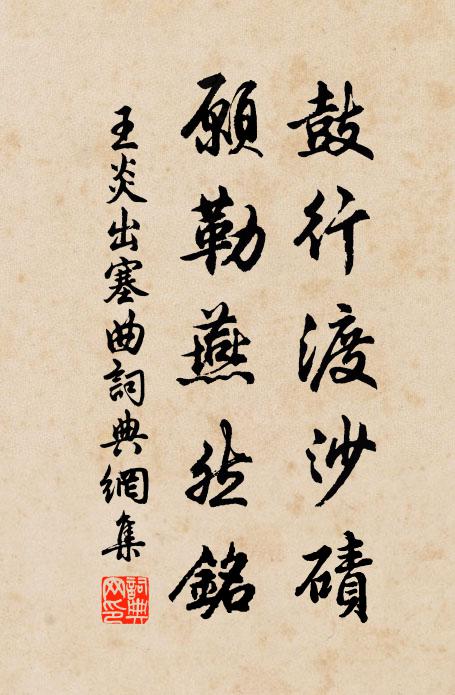 鼓行渡沙磧
願勒燕然銘
王炎出塞曲詞典網集
詞典網印